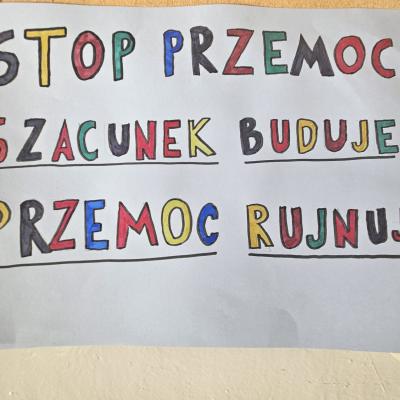 STOP PRZEMOC
SZACUNEK BUDUJE
PRZEMOC RUJNUJ